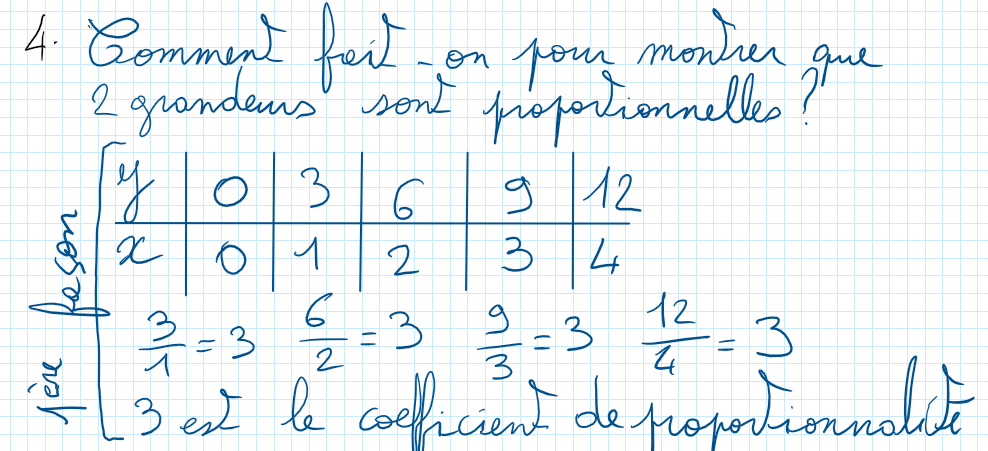 4. Comment fait-on pour montrer que
2 grandeurs sont proportionnelles ?
1ère façon
y | 0 | 3 | 6 | 9 | 12
x | 0 | 1 | 2 | 3 | 4
3/1 = 3 6/2 = 3 9/3 = 3 12/4 = 3
3 est le coefficient de proportionnalité